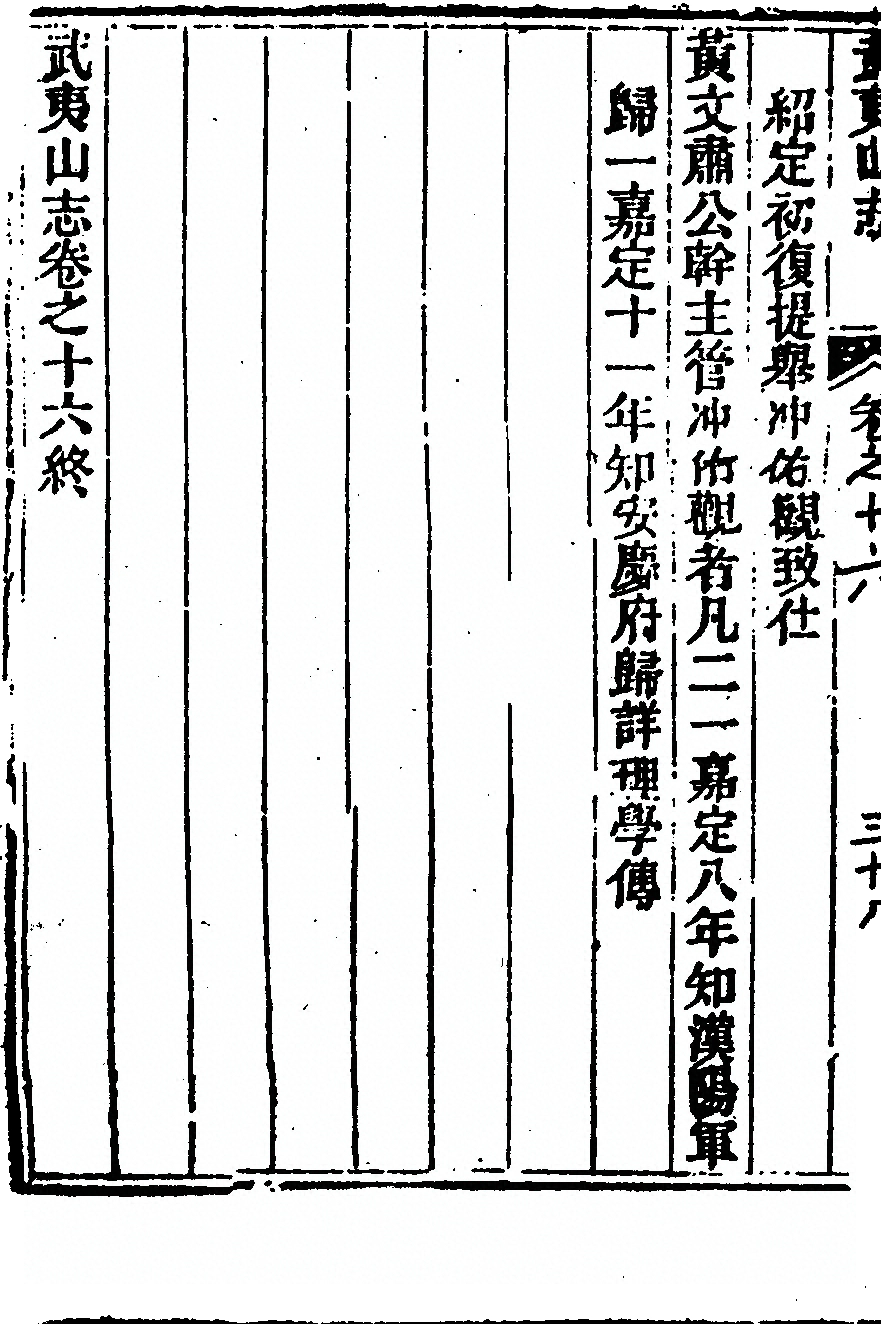 武夷山志 卷之十六 三十八
紹定初復提舉沖佑觀致仕
黃文肅公榦主管沖佑觀者凡二一嘉定八年知漢陽軍
歸一嘉定十一年知安慶府歸詳理學傳
武夷山志卷之十六終